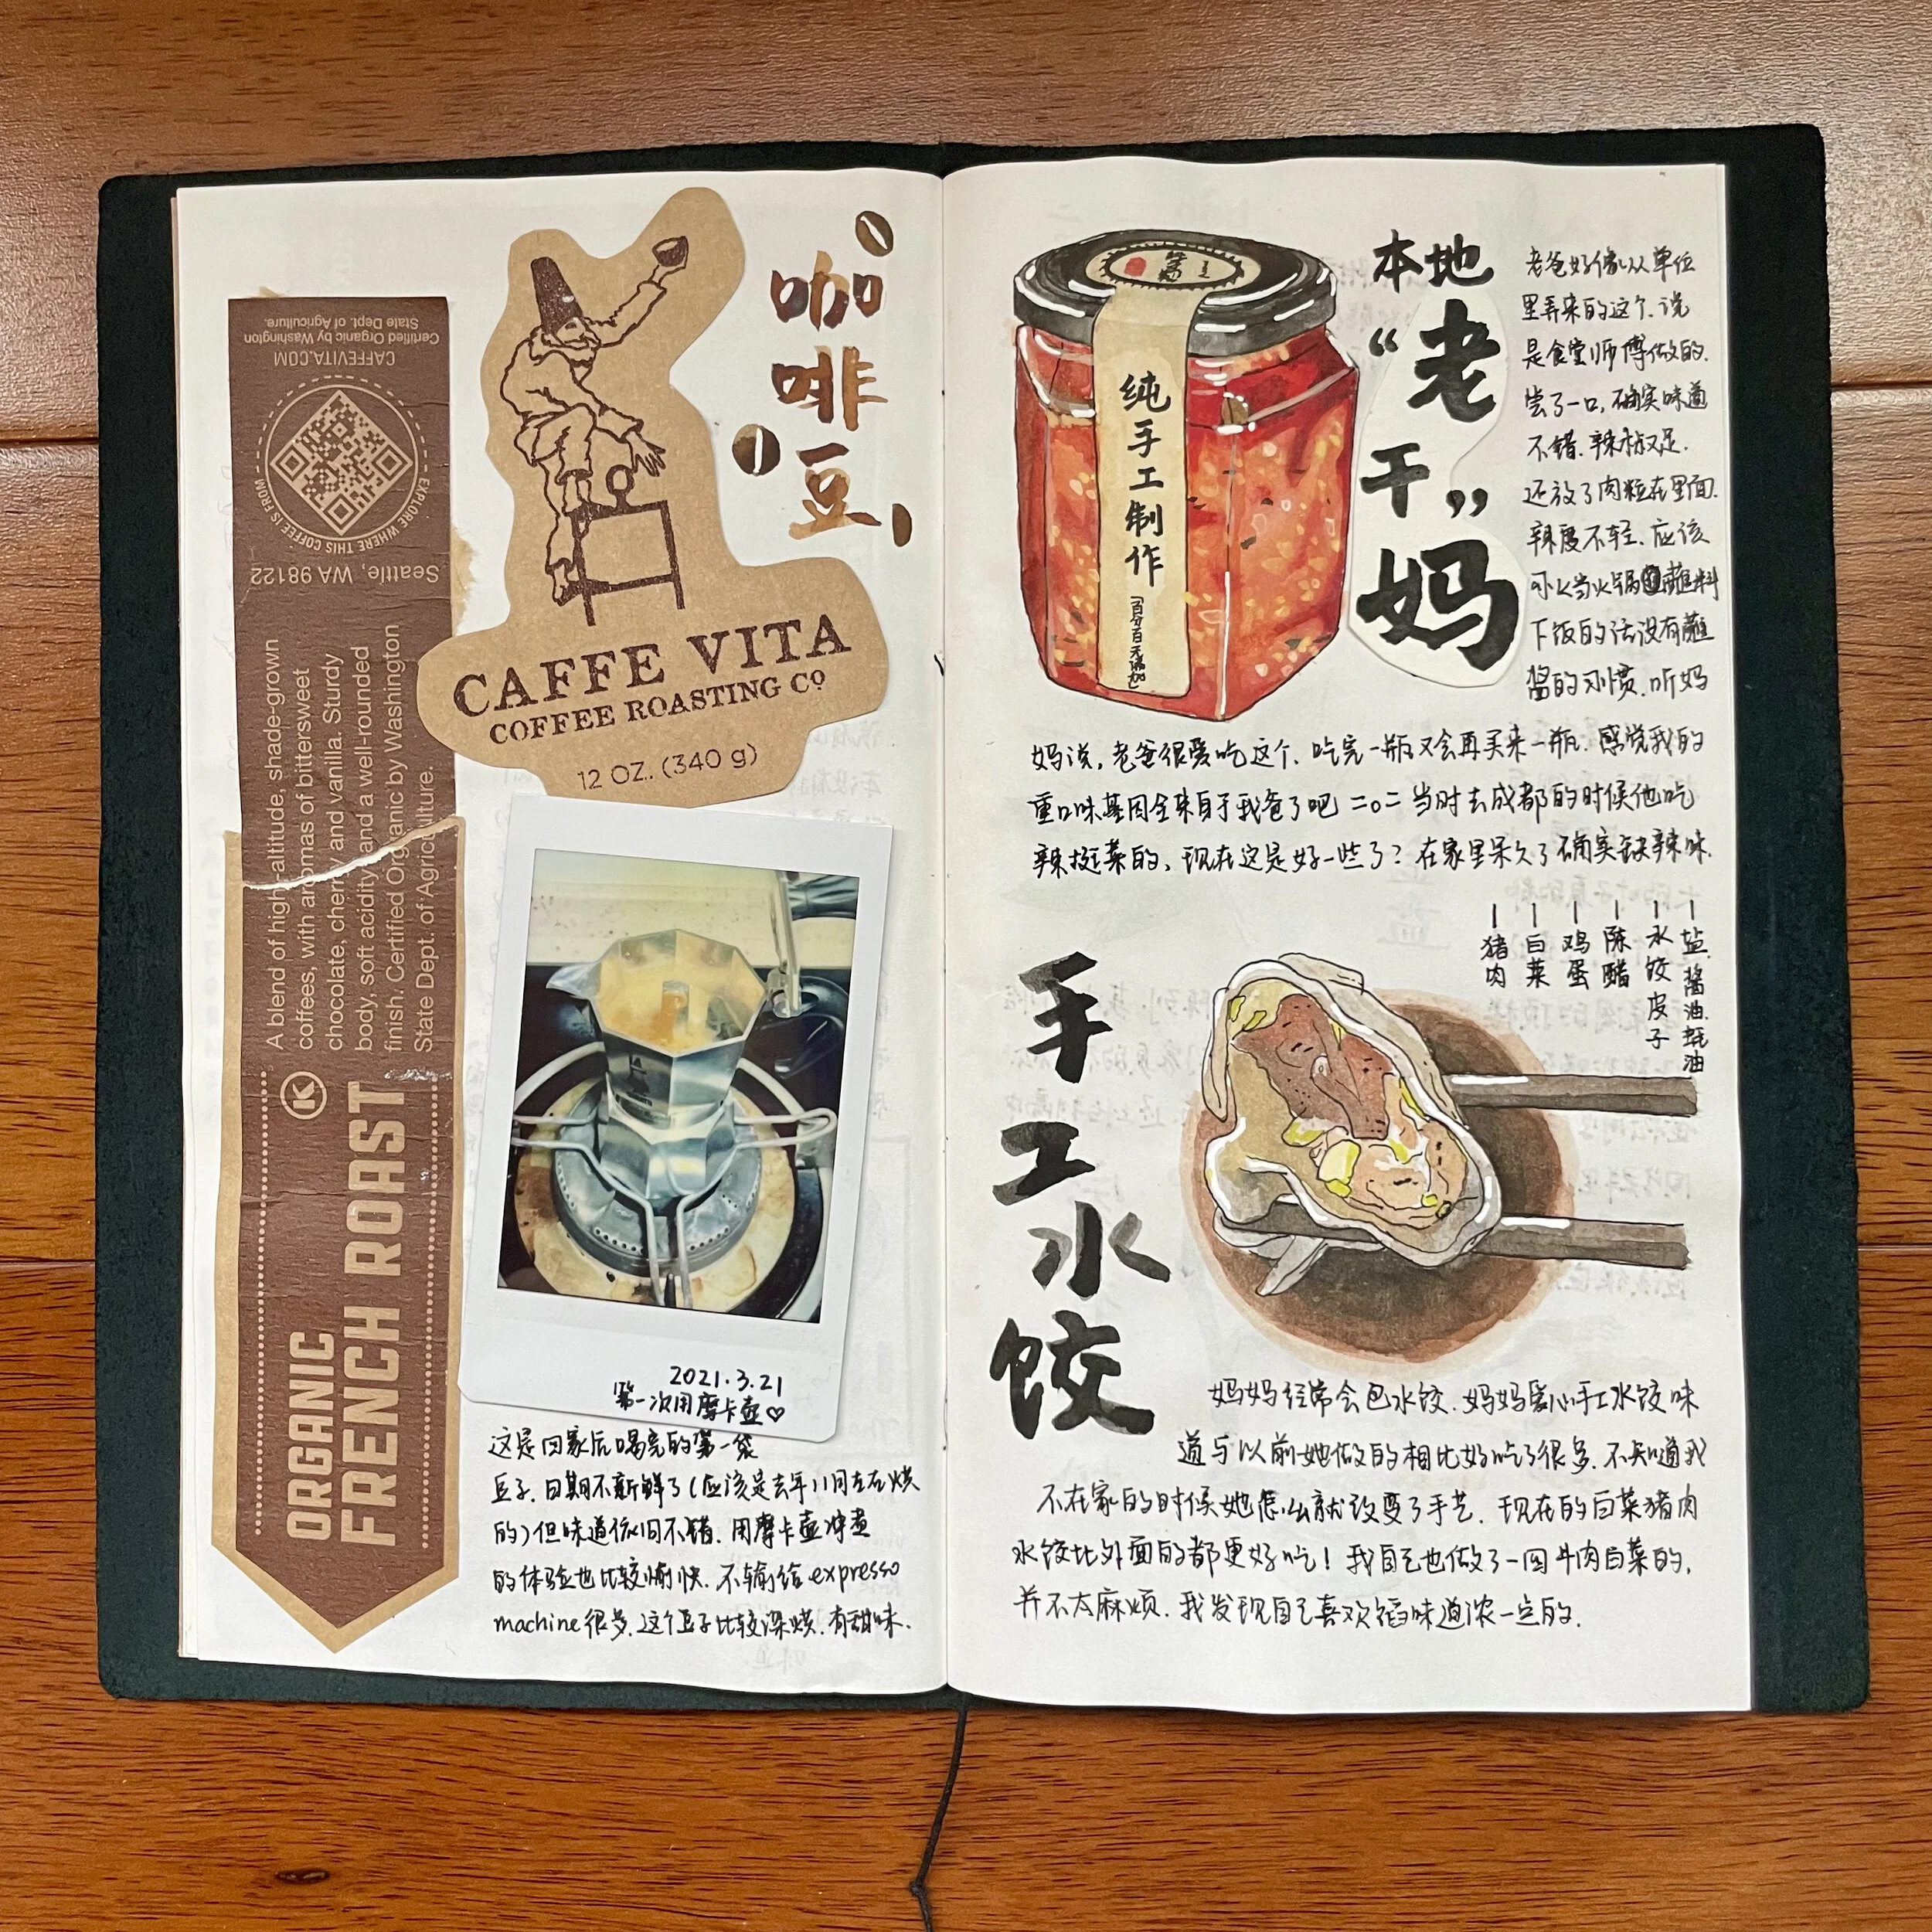 CAFFEVITA.COM
Certified Organic by Washington
State Dept. of Agriculture.
EXPLORE WHERE THIS COFFEE IS FROM
Seattle, WA 98122
A blend of high-altitude, shade-grown
coffees, with aromas of bittersweet
chocolate, cherry and vanilla. Sturdy
body, soft acidity and a well-rounded
finish. Certified Organic by Washington
State Dept. of Agriculture.
K
ORGANIC
FRENCH ROAST
CAFFE VITA
COFFEE ROASTING CO
12 OZ. (340 g)
咖啡豆
2021.3.21
第一次用摩卡壶♡
这是回家后喝完的第一袋
豆子.日期不新鲜了(应该是去年11月左右烘
的)但味道依旧不错.用摩卡壶冲煮
的体验也比较愉快.不输给expresso
machine很多.这个豆子比较深烘.有甜味.
纯手工制作
「百分百无添加」
本地
“老
干”
妈
老爸好像从单位
里弄来的这个.说
是食堂师傅做的.
尝了一口,确实味道
不错.辣椒足.
还放了肉粒在里面.
辣度不轻.应该
可以当火锅蘸料
下饭的话没有蘸
酱的习惯.听妈
妈说,老爸很爱吃这个.吃完一瓶又会再买来一瓶.感觉我的
重口味基因全来自于我爸了吧 =o= 当时去成都的时候他吃
辣挺菜的,现在这是好一些了?在家里呆久了确实缺辣味.
猪肉
白菜
鸡蛋
陈醋
水饺皮子
盐.酱油.耗油
手工水饺
妈妈经常会包水饺.妈妈爱心手工水饺味
道与以前她做的相比好吃了很多.不知道我
不在家的时候她怎么就改变了手艺.现在的白菜猪肉
水饺比外面的都更好吃!我自己也做了一回牛肉白菜的,
并不太麻烦.我发现自己喜欢馅味道浓一点的.